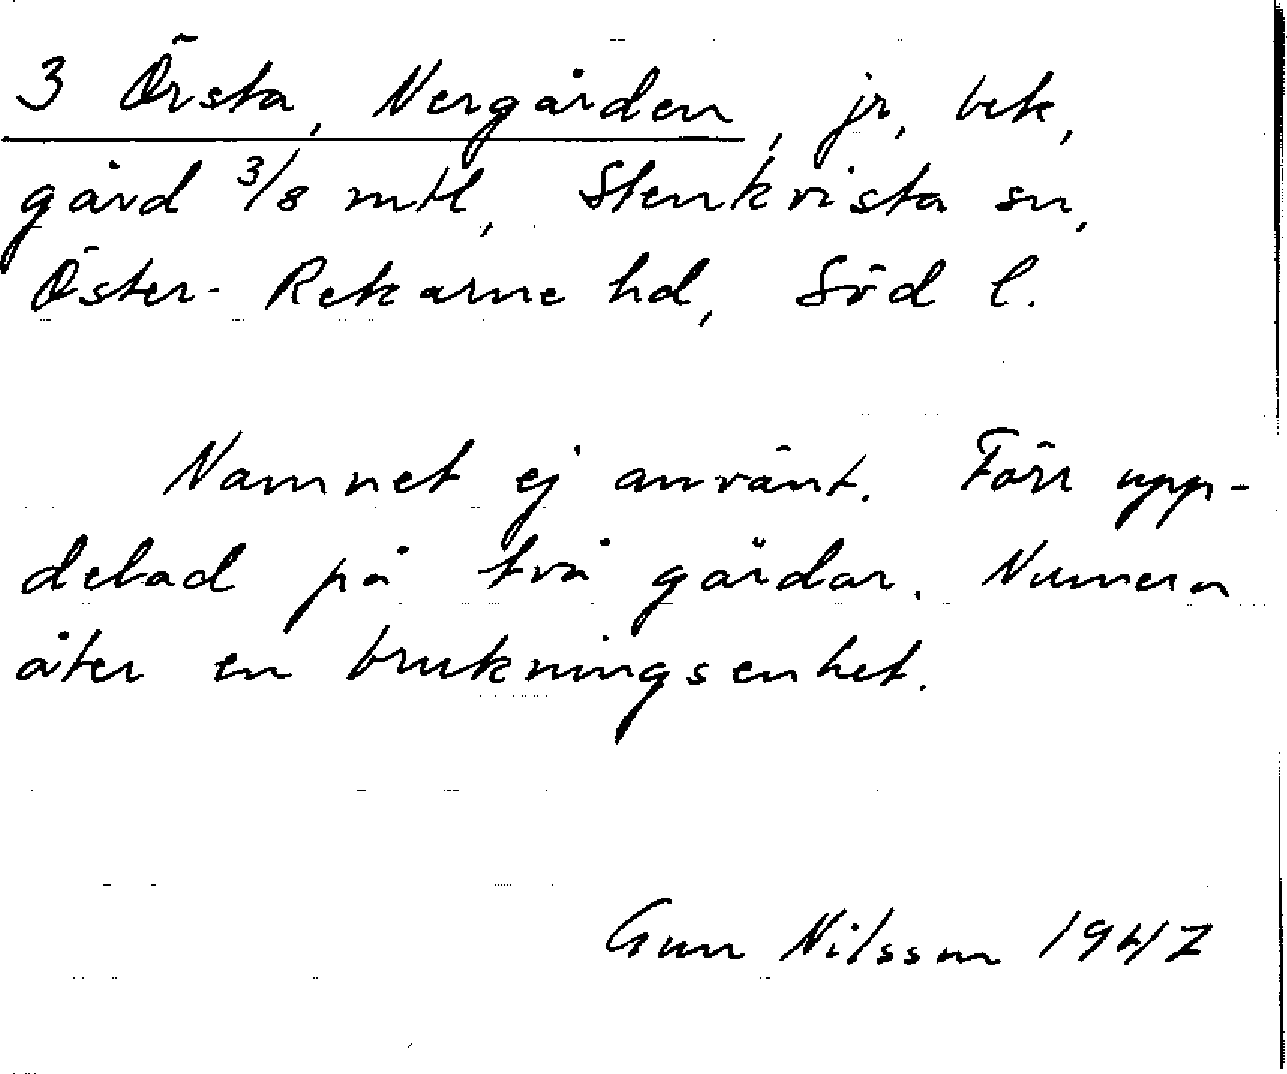 3 Örsta, Nergården, jr, bek,
gård 3/8 mtl, Stenkvista sn,
Öster-Rekarne hd, Söd l.
Namnet ej använt. Förr upp-
delad på två gårdar. Numera
åter en brukningsenhet.
Gun Nilsson 1947